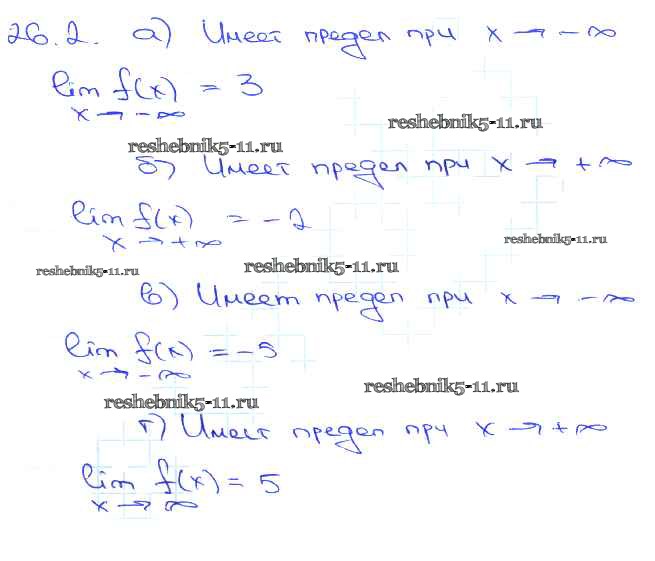 26.2. а) Имеет предел при x → -∞
lim f(x) = 3
x → -∞
reshebnik5-11.ru
reshebnik5-11.ru
б) Имеет предел при x → +∞
lim f(x) = -2
x → +∞
reshebnik5-11.ru
reshebnik5-11.ru
reshebnik5-11.ru
в) Имеет предел при x → -∞
lim f(x) = -5
x → -∞
reshebnik5-11.ru
reshebnik5-11.ru
г) Имеет предел при x → +∞
lim f(x) = 5
x → ∞